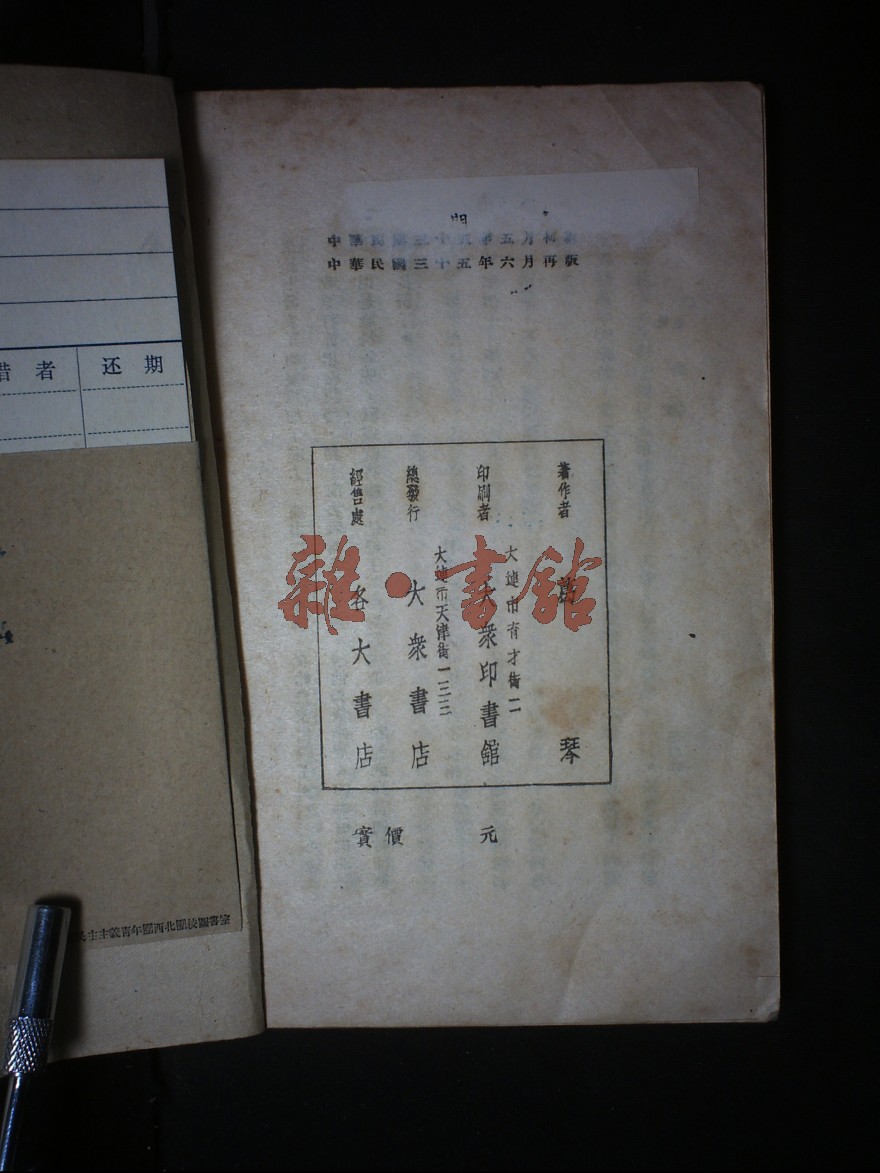 中華民國三十五年五月初版
中華民國三十五年六月再版
著作者
琴
印刷者
大連市育才街二
大衆印書館
總發行
大連市天津街一三三
大衆書店
經售處
各大書店
實價 元
借者 还期
民主主義青年團西北團校圖書室
雜·書館